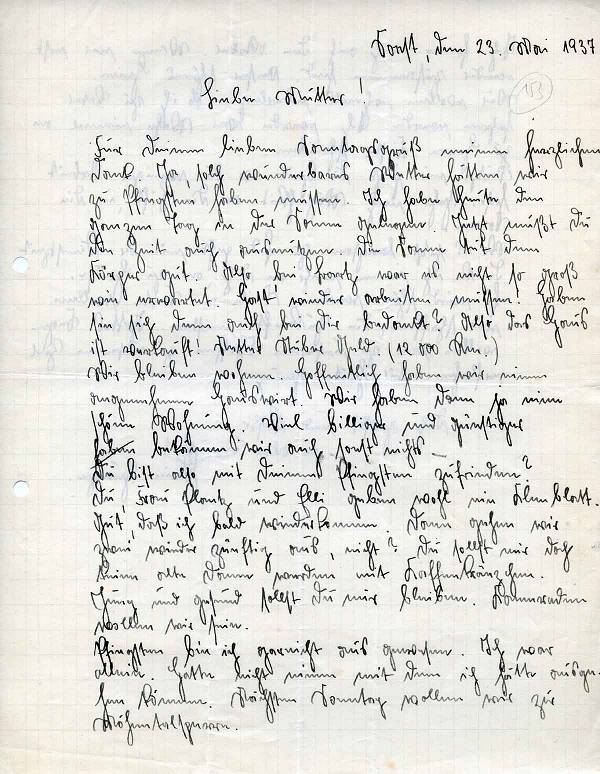 Soest, den 23. Mai 1937
153
Lieber Mutter!
Für deinen lieben Sonntagsgruß meinen herzlichen
Dank. Ja, solch wunderbares Wetter hätten wir
zu Pfingsten haben müssen. Ich habe heute den
ganzen Tag in der Sonne gelegen. Jetzt mußt du
die Zeit auch ausnutzen. Die Sonne tut dem
Körper gut. Also bei war es nicht so groß
wie erwartet. Hast wieder arbeiten müssen! Haben
sie sich denn auch bei dir bedankt? Also das Haus
ist verkauft! Geld. (12 000 Rm.)
Wir bleiben wohnen. Hoffentlich haben wir einen
angenehmen Hauswirt. Wir haben dann ja eine
schöne Wohnung. Viel billiger und günstiger
haben bekommen wir auch sonst nichts. –
Du bist also mit deinem Pfingsten zufrieden?
Du, Frau und Elli geben wohl ein Kleeblatt.
Gut, daß ich bald wiederkomme. Dann gehen wir
zwei wieder zünftig aus, nicht? Du sollst mir doch
keine alte Dame werden mit Kaffeekränzchen.
Jung und gesund sollst du mir bleiben. Kameraden
wollen wir sein.
Pfingsten bin ich garnicht aus gewesen. Ich war
allein. Hatte nicht einen mit dem ich hätte ausge-
hen können. Nächsten Sonntag wollen wir zur
Möhnetalsperre.